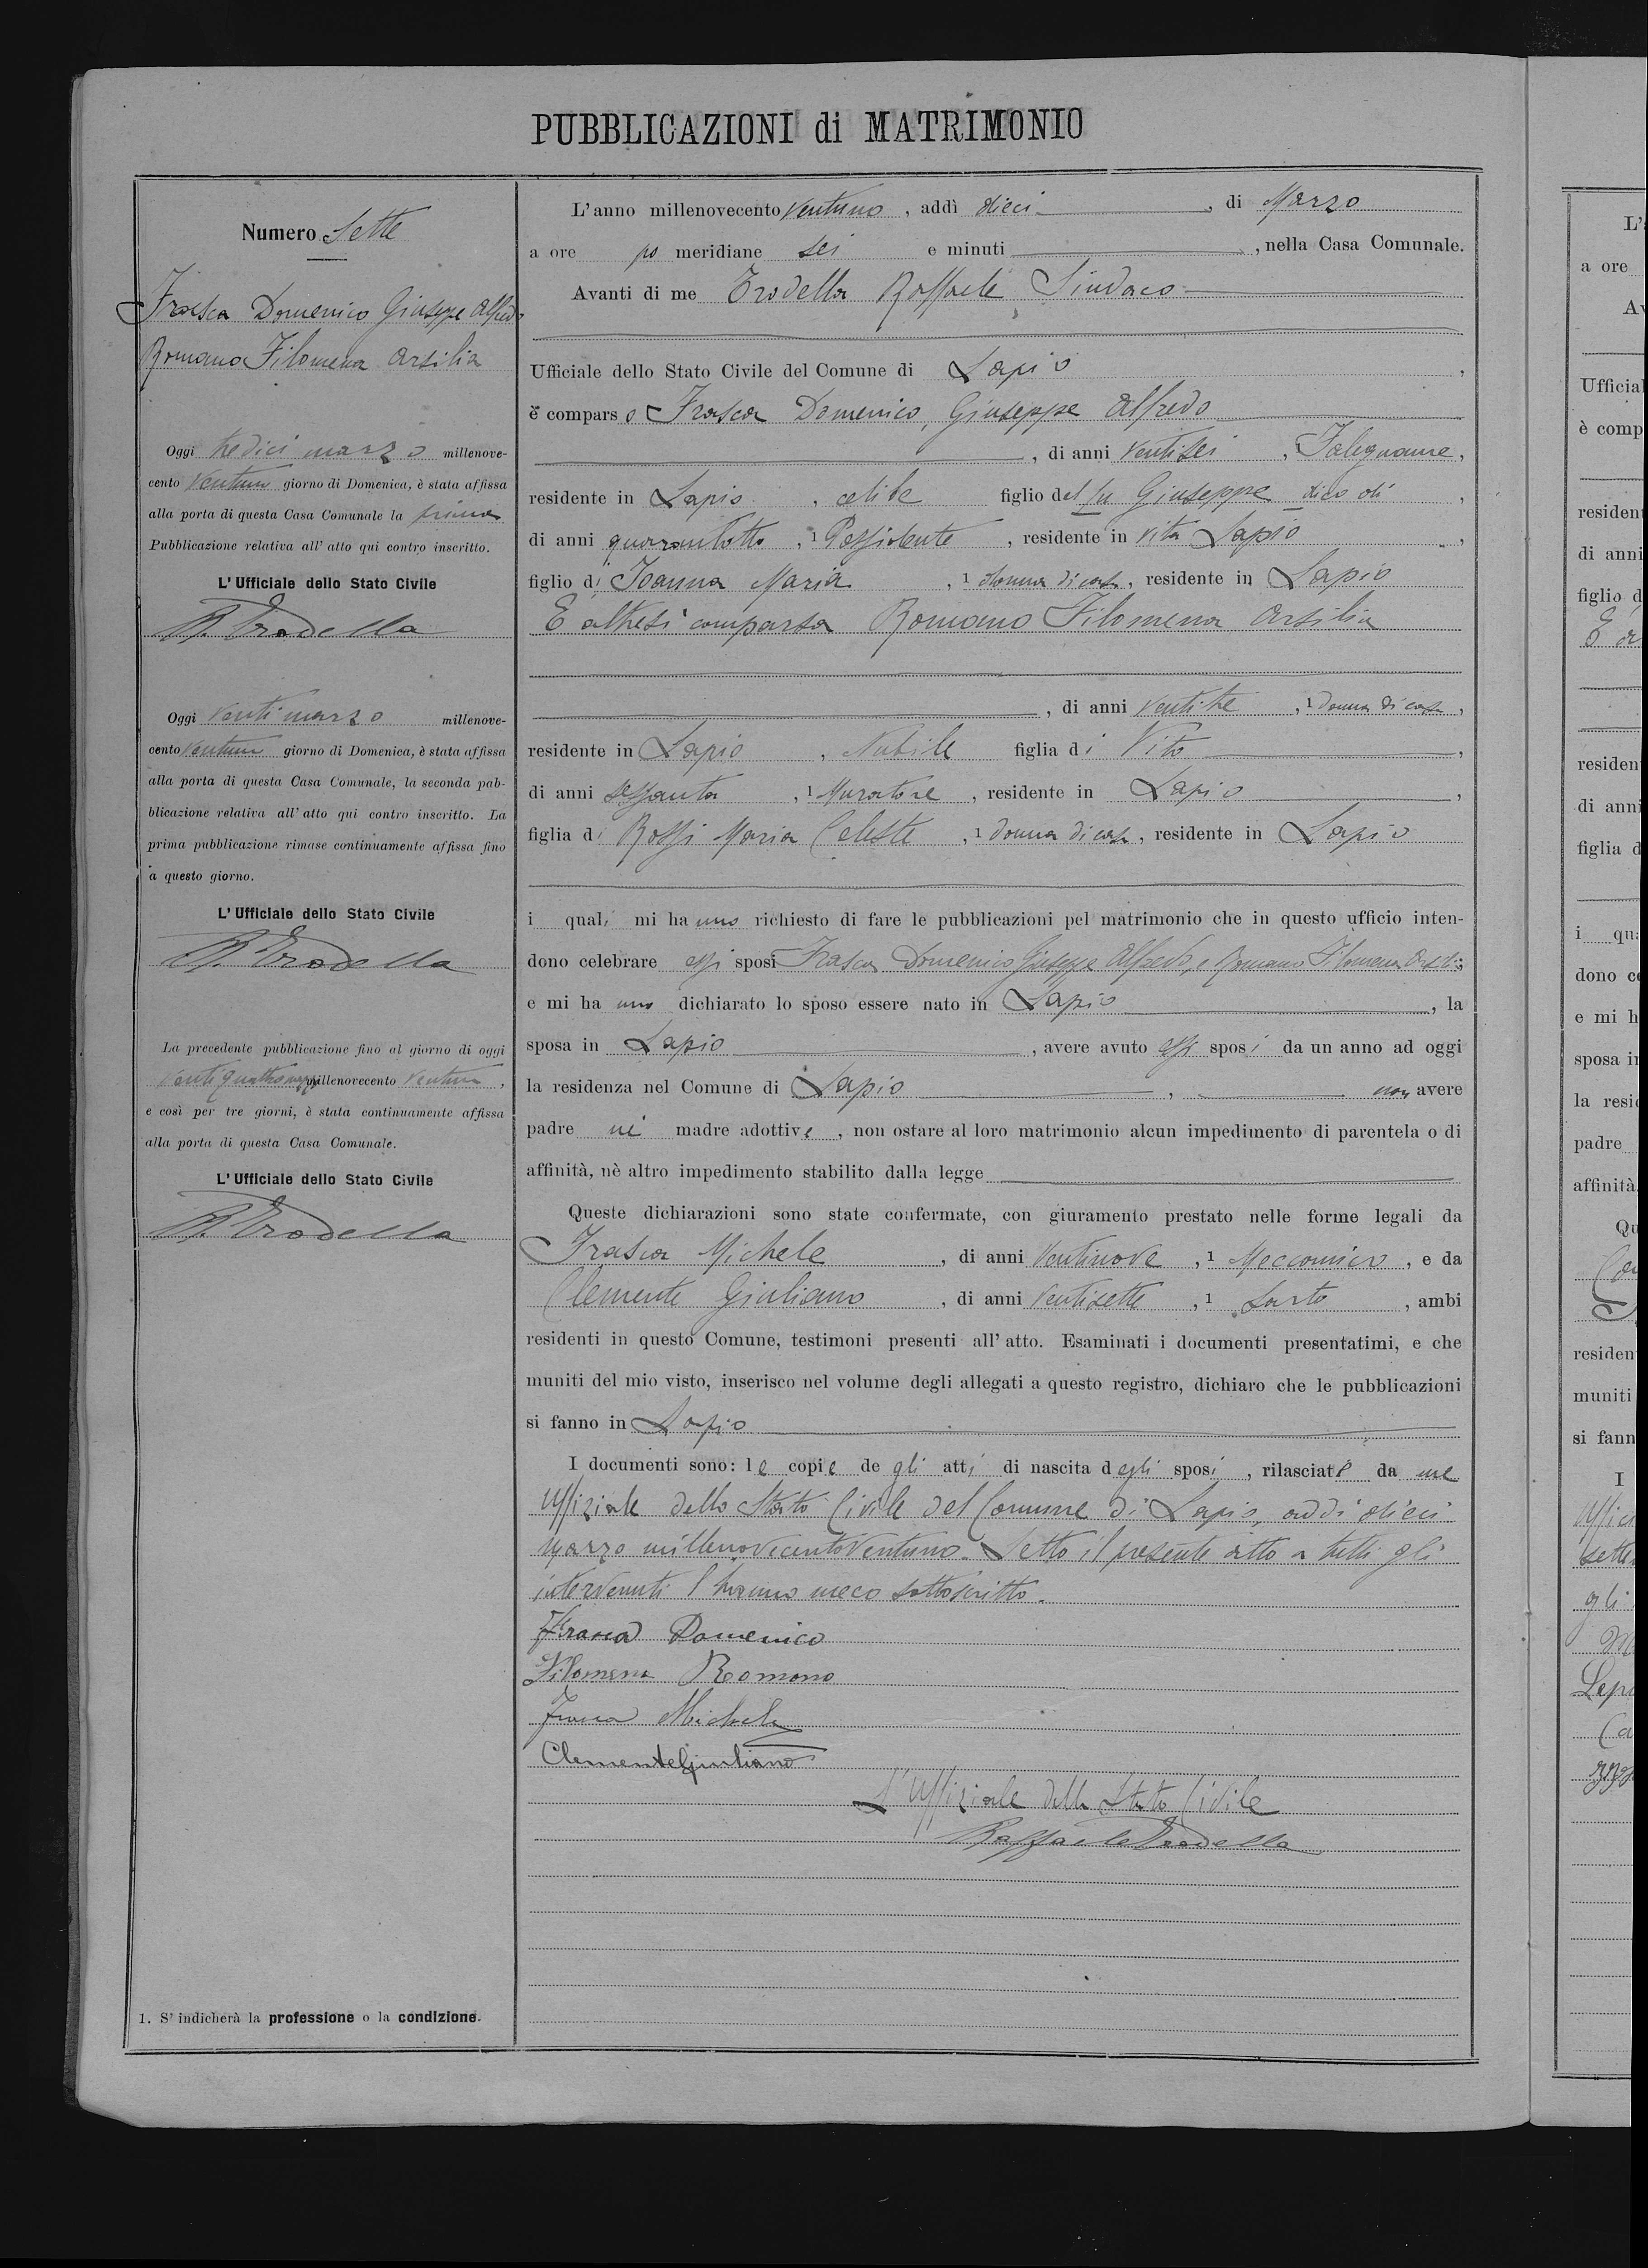 PUBBLICAZIONI di MATRIMONIO
Numero Sette
Frasca Domenico Giuseppe Alfredo
Romano Filomena Arsilia
Oggi tredici marzo millenove-
cento ventuno giorno di Domenica, è stata affissa
alla porta di questa Casa Comunale la prima
Pubblicazione relativa all' atto qui contro inscritto.
L' Ufficiale dello Stato Civile
R. Trodella
Oggi venti marzo millenove-
cento ventuno giorno di Domenica, è stata affissa
alla porta di questa Casa Comunale, la seconda pub-
blicazione relativa all' atto qui contro inscritto. La
prima pubblicazione rimase continuamente affissa fino
a questo giorno.
L' Ufficiale dello Stato Civile
R. Trodella
La precedente pubblicazione fino al giorno di oggi
ventiquattro marzo millenovecento ventuno,
e così per tre giorni, è stata continuamente affissa
alla porta di questa Casa Comunale.
L' Ufficiale dello Stato Civile
R. Trodella
1. S' indicherà la professione o la condizione.
L' anno millenovecento ventuno, addì dieci, di Marzo
a ore po meridiane sei e minuti , nella Casa Comunale.
Avanti di me Trodella Raffaele Sindaco
Ufficiale dello Stato Civile del Comune di Lapio,
è comparso Frasca Domenico, Giuseppe Alfredo
, di anni ventisei, Falegname,
residente in Lapio, celibe figlio del fu Giuseppe dico di,
di anni quarantotto, 1 Possidente, residente in vita Lapio,
figlio di Ioanna Maria, 1 donna di casa, residente in Lapio
È altresì comparsa Romano Filomena Arsilia
, di anni ventitre, 1 donna di casa,
residente in Lapio, Nubile figlia di Vito,
di anni sessanta, 1 Muratore, residente in Lapio,
figlia di Rossi Maria Celeste, 1 donna di casa, residente in Lapio
i quali mi hanno richiesto di fare le pubblicazioni pel matrimonio che in questo ufficio inten-
dono celebrare essi sposi Frasca Domenico Giuseppe Alfredo, e Romano Filomena Arsilia;
e mi hanno dichiarato lo sposo essere nato in Lapio, la
sposa in Lapio, avere avuto essi sposi da un anno ad oggi
la residenza nel Comune di Lapio, non avere
padre nè madre adottivi, non ostare al loro matrimonio alcun impedimento di parentela o di
affinità, nè altro impedimento stabilito dalla legge
Queste dichiarazioni sono state confermate, con giuramento prestato nelle forme legali da
Frasca Michele, di anni ventinove, 1 Meccanico, e da
Clemente Giuliano, di anni ventisette, 1 Sarto, ambi
residenti in questo Comune, testimoni presenti all' atto. Esaminati i documenti presentatimi, e che
muniti del mio visto, inserisco nel volume degli allegati a questo registro, dichiaro che le pubblicazioni
si fanno in Lapio
I documenti sono: le copie degli atti di nascita degli sposi, rilasciate da me
Uffiziale dello Stato Civile del Comune di Lapio, addì dieci
marzo millenovecentoventuno. Letto il presente atto a tutti gli
intervenuti l'hanno meco sottoscritto.
Frasca Domenico
Filomena Romano
Frasca Michele
Clemente Giuliano
L'Uffiziale dello Stato Civile
Raffaele Trodella
L'
a ore
Av
Ufficial
è comp
resident
di anni
figlio d
residen
di anni
figlia d
i qu
dono ce
e mi h
sposa in
la resid
padre
affinità
Qu
residen
muniti
si fann
I